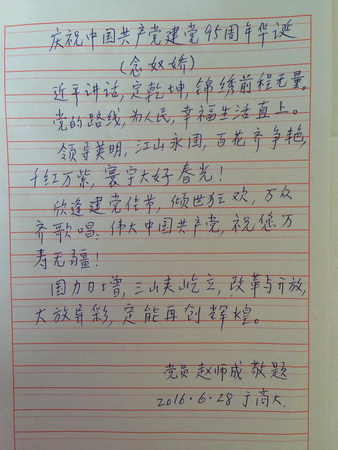 庆祝中国共产党建党95周年华诞
(念奴娇)
近平讲话,定乾坤,锦绣前程无量。
党的路线,为人民,幸福生活直上。
领导英明,江山永固,百花齐争艳,
千红万紫,寰宇大好春光!
欣逢建党佳节,倾世狂欢,万众
齐歌唱。伟大中国共产党,祝您万
寿无疆!
国力日增,三山夷屹立,改革与开放,
大放异彩,定能再创辉煌。
党员 赵师成 敬题
2016.6.28 于商大.